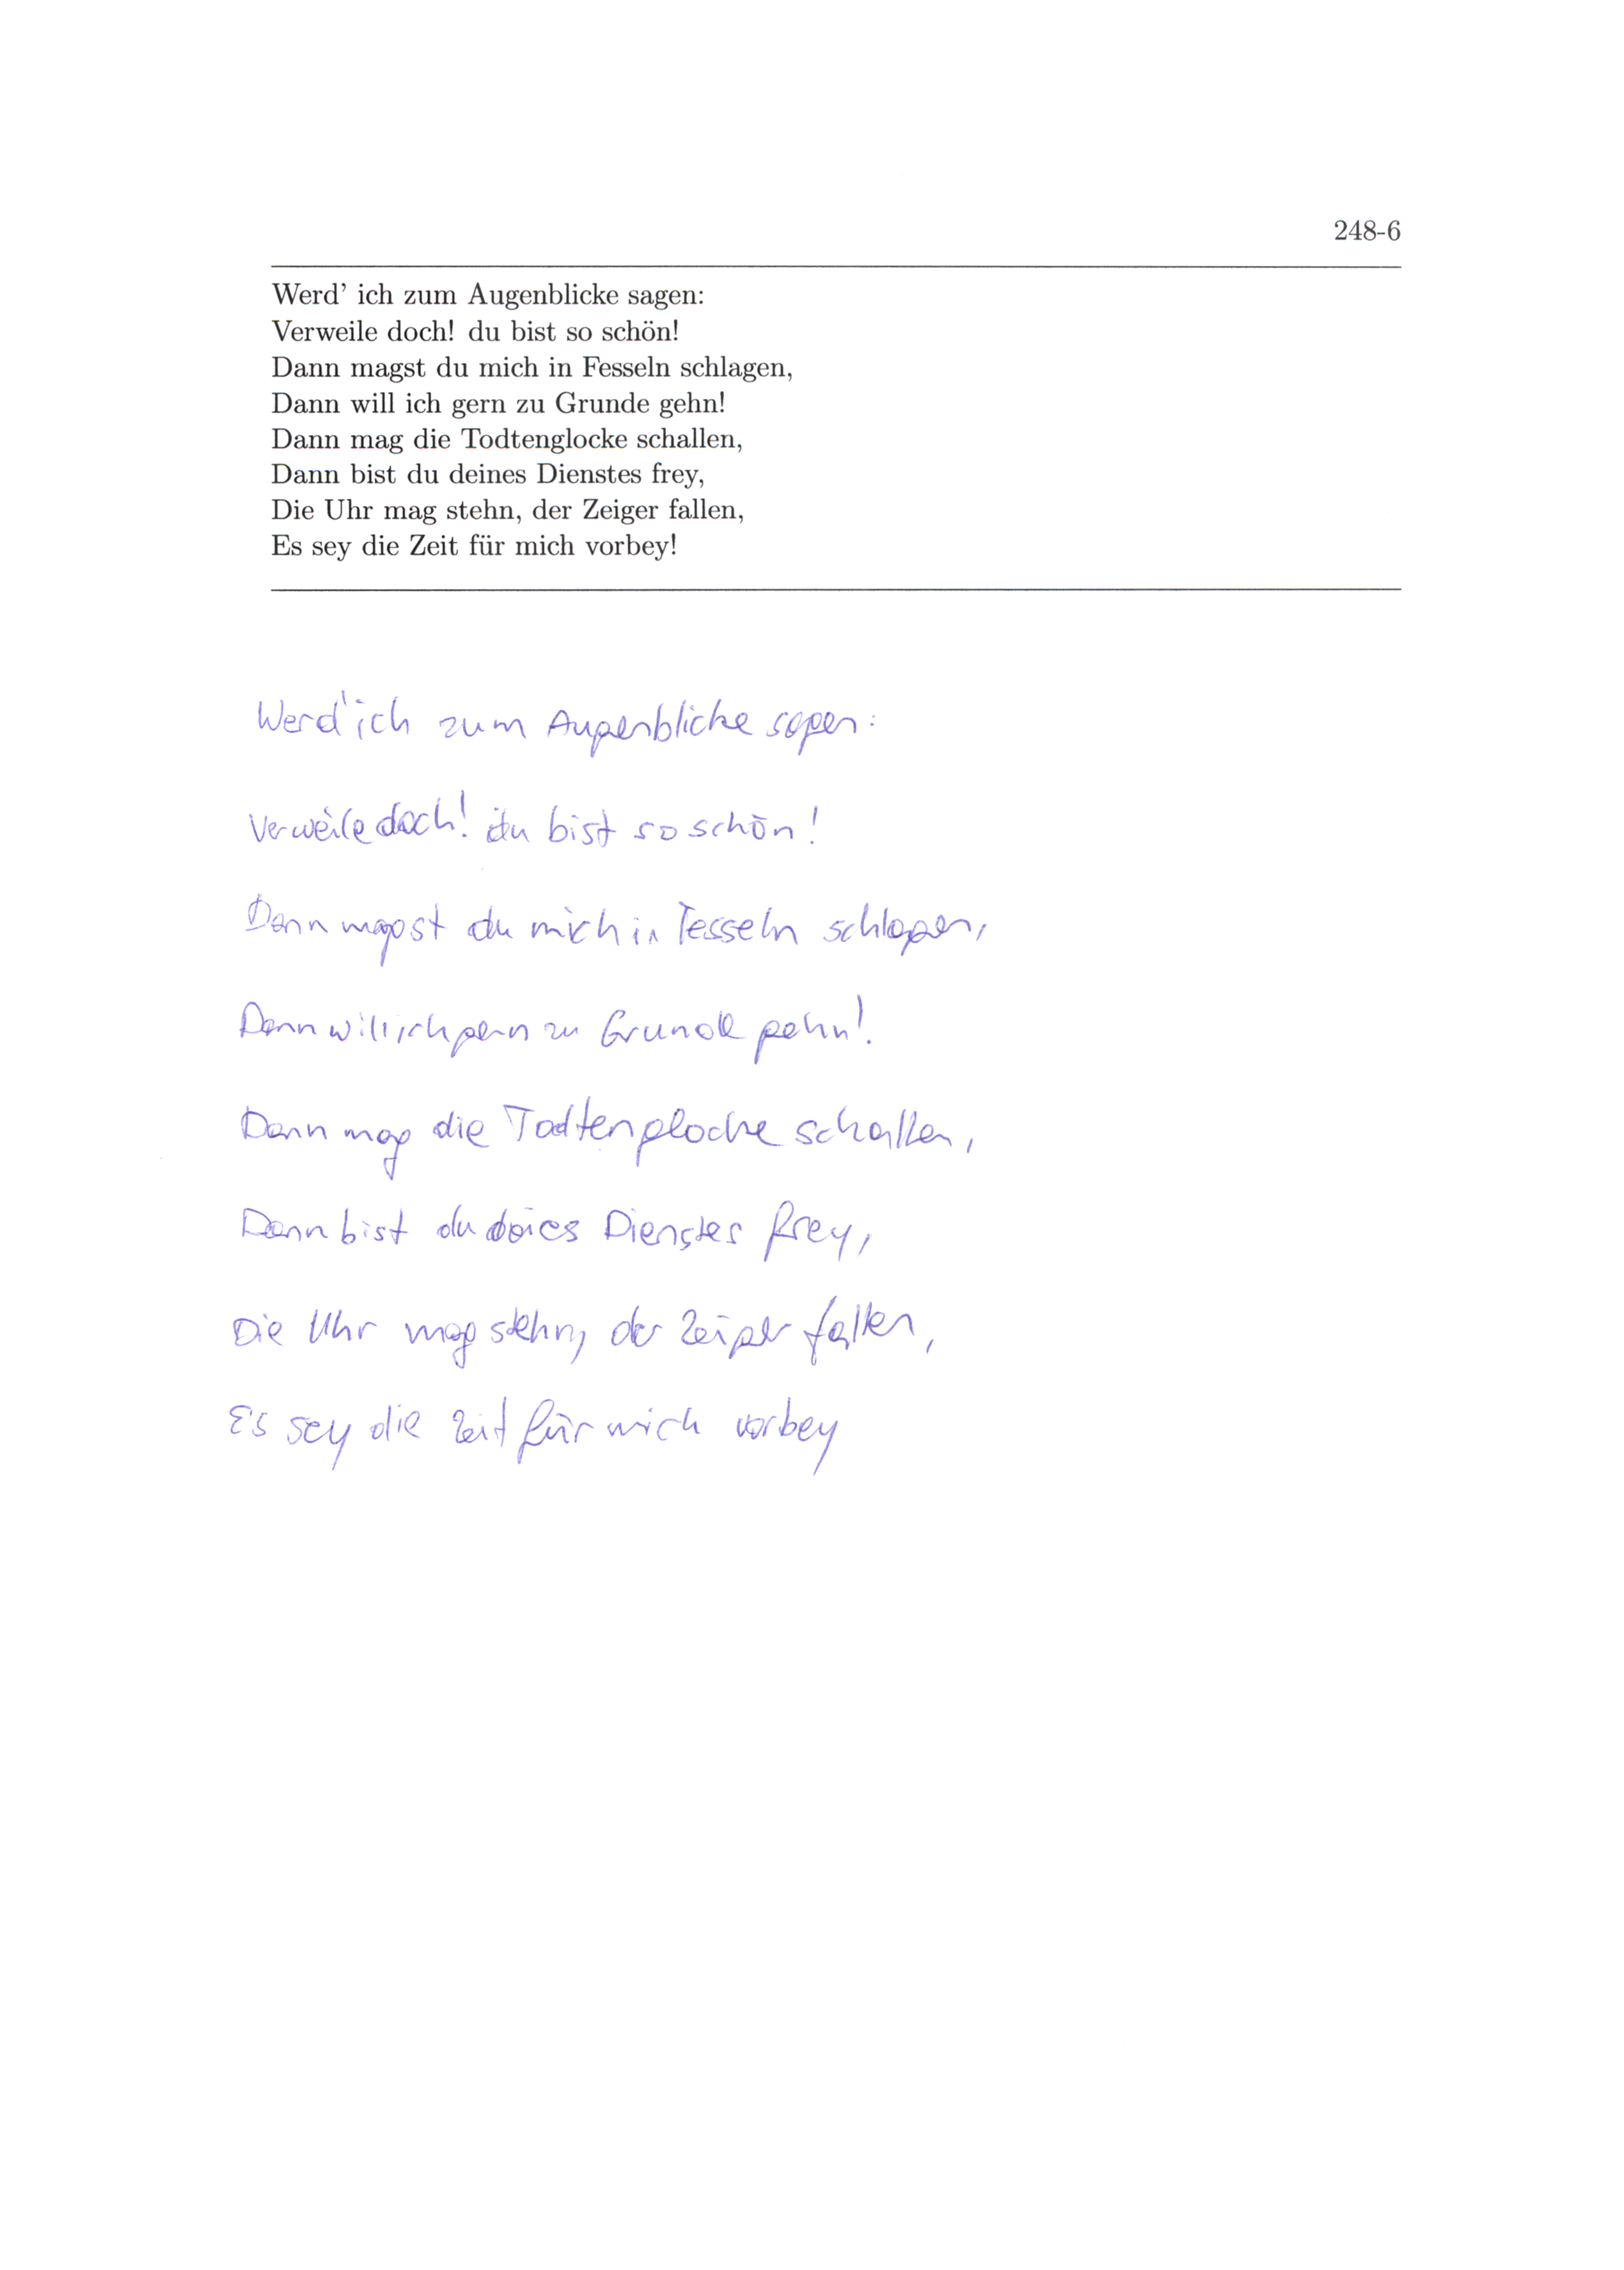 248-6
Werd' ich zum Augenblicke sagen:
Verweile doch! du bist so schön!
Dann magst du mich in Fesseln schlagen,
Dann will ich gern zu Grunde gehn!
Dann mag die Todtenglocke schallen,
Dann bist du deines Dienstes frey,
Die Uhr mag stehn, der Zeiger fallen,
Es sey die Zeit für mich vorbey!
Werd' ich zum Augenblicke sagen:
Verweile doch! du bist so schön!
Dann magst du mich in Fesseln schlagen,
Dann will ich gern zu Grunde gehn!
Dann mag die Todtenglocke schallen,
Dann bist du deies Dienstes frey,
Die Uhr mag stehn, der Zeiger fallen,
Es sey die Zeit für mich vorbey